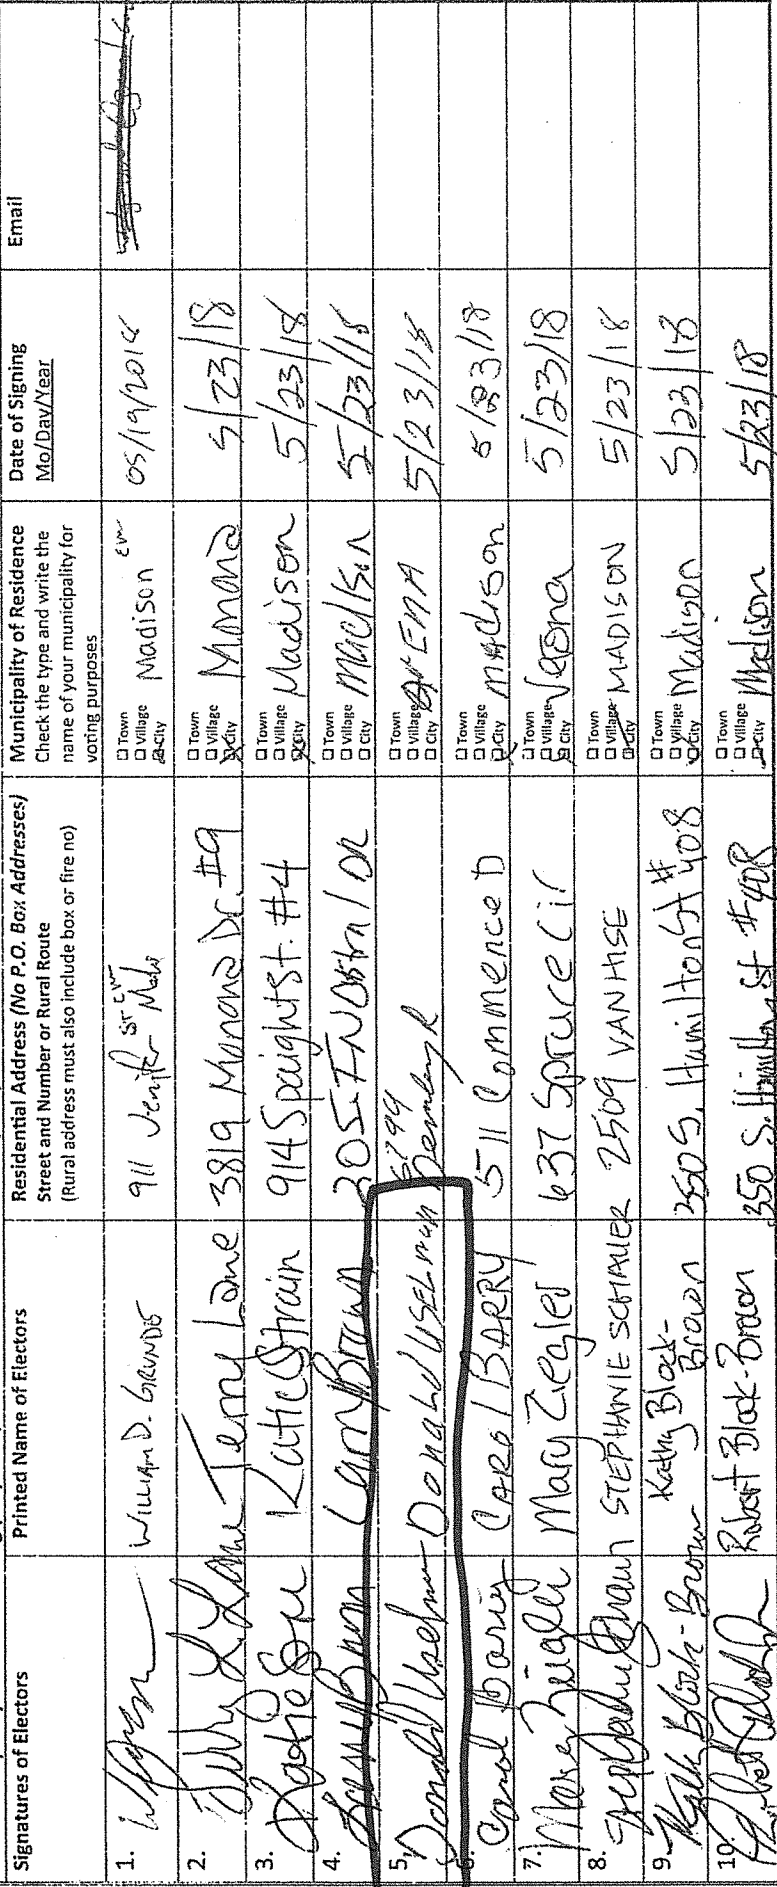 Signatures of Electors
Printed Name of Electors
Residential Address (No P.O. Box Addresses)
Street and Number or Rural Route
(Rural address must also include box or fire no)
Municipality of Residence
Check the type and write the
name of your municipality for
voting purposes
Date of Signing
Mo/Day/Year
Email
1.
WILLIAM D. GRUNDE
911 Jenifer St
□ Town
□ Village
□ City
Madison
05/19/2018
2.
Terry Lane
3819 Monona Dr. #9
□ Town
□ Village
□ City
Monona
5/23/18
3.
Katie Strain
914 Spaight St. #4
□ Town
□ Village
□ City
Madison
5/23/18
4.
Larry Brown
□ Town
□ Village
□ City
Madison
5/23/18
5.
Donald Uselman
Donald USELman
6799
□ Town
□ Village
□ City
ArENA
5/23/18
6.
Carol Barry
CAROl BARRY
511 Commence D
□ Town
□ Village
□ City
madison
5/23/18
7.
Mary Ziegler
Mary Ziegler
637 Spruce Cir
□ Town
□ Village
□ City
Verona
5/23/18
8.
STEPHANIE SCHALLER
2509 VAN HISE
□ Town
□ Village
□ City
MADISON
5/23/18
9.
Kathy Block-Brown
Kathy Block-
Brown
350 S. Hamilton St #
408
□ Town
□ Village
□ City
Madison
5/23/18
10.
Robert Block-Brown
350 S. Hamilton St #408
□ Town
□ Village
□ City
Madison
5/23/18